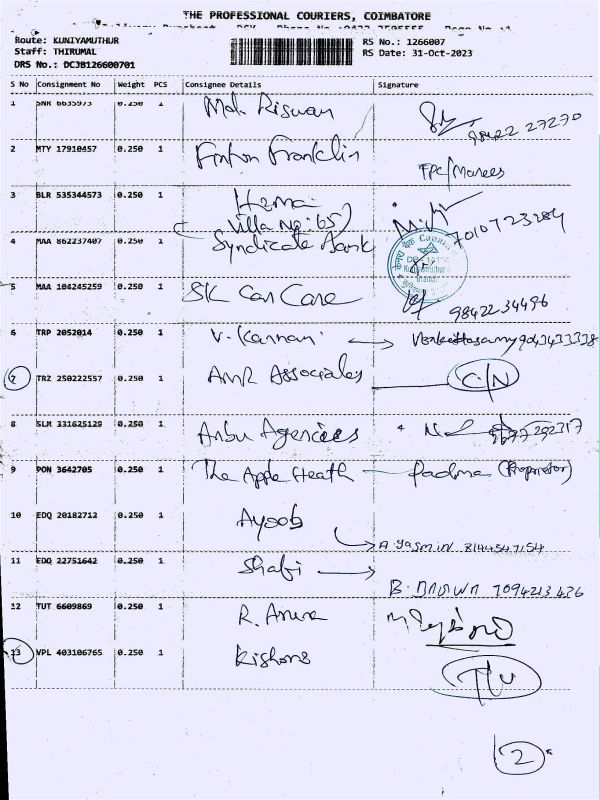 THE PROFESSIONAL COURIERS, COIMBATORE
Route: KUNIYAMUTHUR
Staff: THIRUMAL
DRS No.: DCJB126600701
RS No.: 1266007
RS Date: 31-Oct-2023
S No Consignment No Weight PCS Consignee Details Signature
1 SNR 6635973 0.250 1 Moh Riswan 98422 27270
2 MTY 17910457 0.250 1 Franklin FPC/Marees
3 BLR 535344573 0.250 1 Hema
Villa No: 65 7010723284
4 MAA 862237407 0.250 1 Syndicate Bank
5 MAA 104245259 0.250 1 SK Car Care 9842234496
6 TRP 2052014 0.250 1 V. Kannan
7 TRZ 250222557 0.250 1 AMR Associates C/N
8 SLM 331625129 0.250 1 Anbu Agencies
9 PON 3642705 0.250 1 The Apple Heath Padma (Proprietor)
10 EDQ 20182712 0.250 1 Ayoob A. Yasmin 8144547154
11 EDQ 22751642 0.250 1 Shafi B. 7094213436
12 TUT 6609869 0.250 1 R. Aruna
13 VPL 403106765 0.250 1 Kishore
2